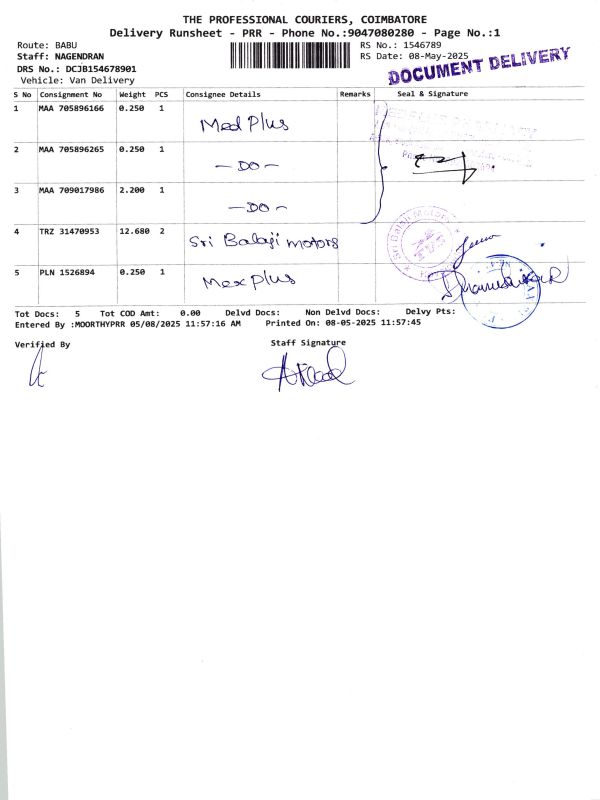 THE PROFESSIONAL COURIERS, COIMBATORE
Delivery Runsheet - PRR - Phone No.:9047080280 - Page No.:1
Route: BABU
RS No.: 1546789
Staff: NAGENDRAN
RS Date: 08-May-2025
DRS No.: DCJB154678901
Vehicle: Van Delivery
DOCUMENT DELIVERY
S No Consignment No Weight PCS Consignee Details Remarks Seal & Signature
1 MAA 705896166 0.250 1 Med Plus
2 MAA 705896265 0.250 1 -DO-
3 MAA 709017986 2.200 1 -DO-
4 TRZ 31470953 12.680 2 Sri Balaji motors
Sri Balaji Motors
5 PLN 1526894 0.250 1 Max plus
Tot Docs: 5 Tot COD Amt: 0.00 Delvd Docs: Non Delvd Docs: Delvy Pts:
Entered By :MOORTHYPRR 05/08/2025 11:57:16 AM Printed On: 08-05-2025 11:57:45
Verified By
Staff Signature